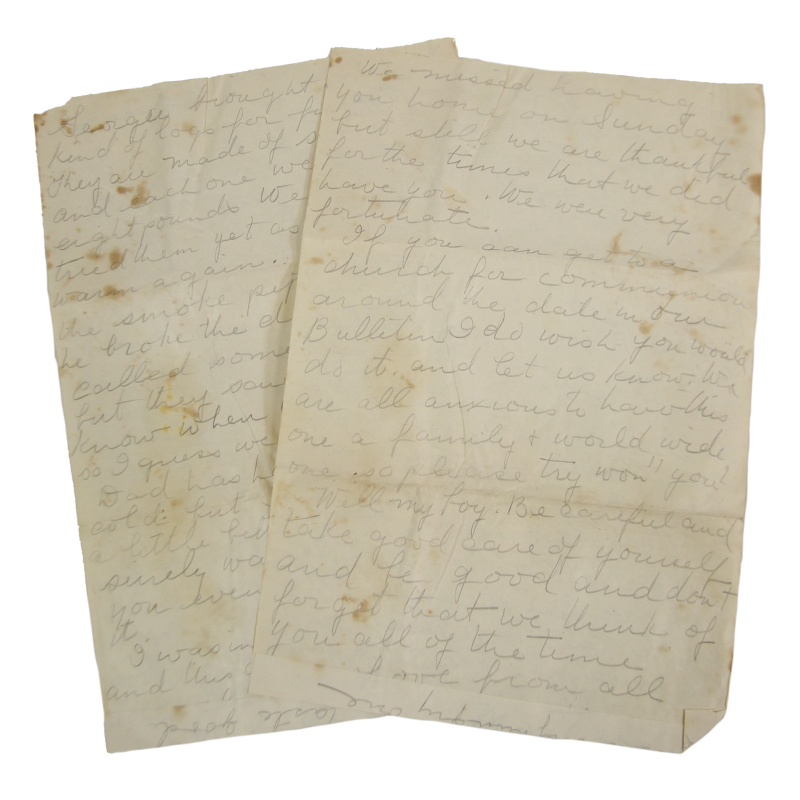 Georgie brought
kind of logs for
They are made of s
and each one we
eight pounds We
tried them yet as
warm again.
the smoke pip
he broke the d
called some
but they saw
know when
so I guess we
Dad has h
cold. but
a little bit
surely wa
you even
it.
I was in
and this
We missed having
you home on Sunday
but still we are thankful
for the times that we did
have you. We were very
fortunate.
If you can get to a
church for communion
around the date in our
Bulletin I do wish you would
do it. and let us know. We
are all anxious to have this
one a family & world wide
one. so please try won't you?
Well my boy. Be careful and
take good care of yourself
and be good and don't
forget that we think of
you all of the time
Love from all